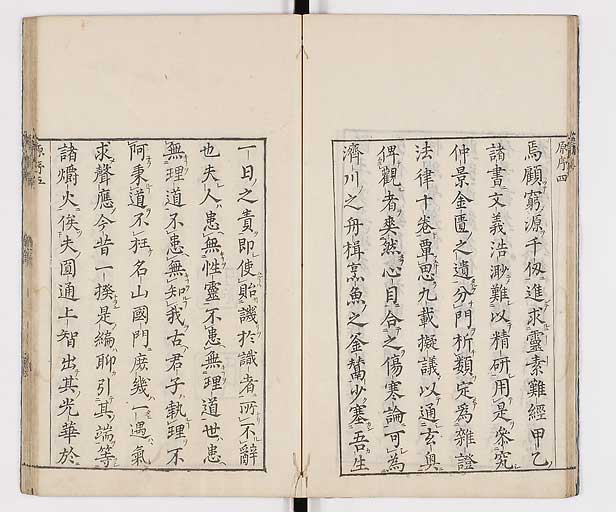 原序四
焉顧窮源千仭進求靈素難經甲乙
諸書文義浩渺難以精研用是叅究
仲景金匱之遺分門析類定爲雜證
法律十卷覃思九載擬議以通玄奥
俾觀者爽然心目合之傷寒論可爲
濟川之舟楫烹魚之釜鬵少塞吾生
一日之責即使貽譏於識者所不辭
也夫人患無性靈不患無理道世患
無理道不患無知我古君子執理不
阿秉道不枉名山國門庶幾一遇氣
求聲應今昔一揆是編聊引其端等
諸爝火俟夫圓通上智出其光華於
原序五